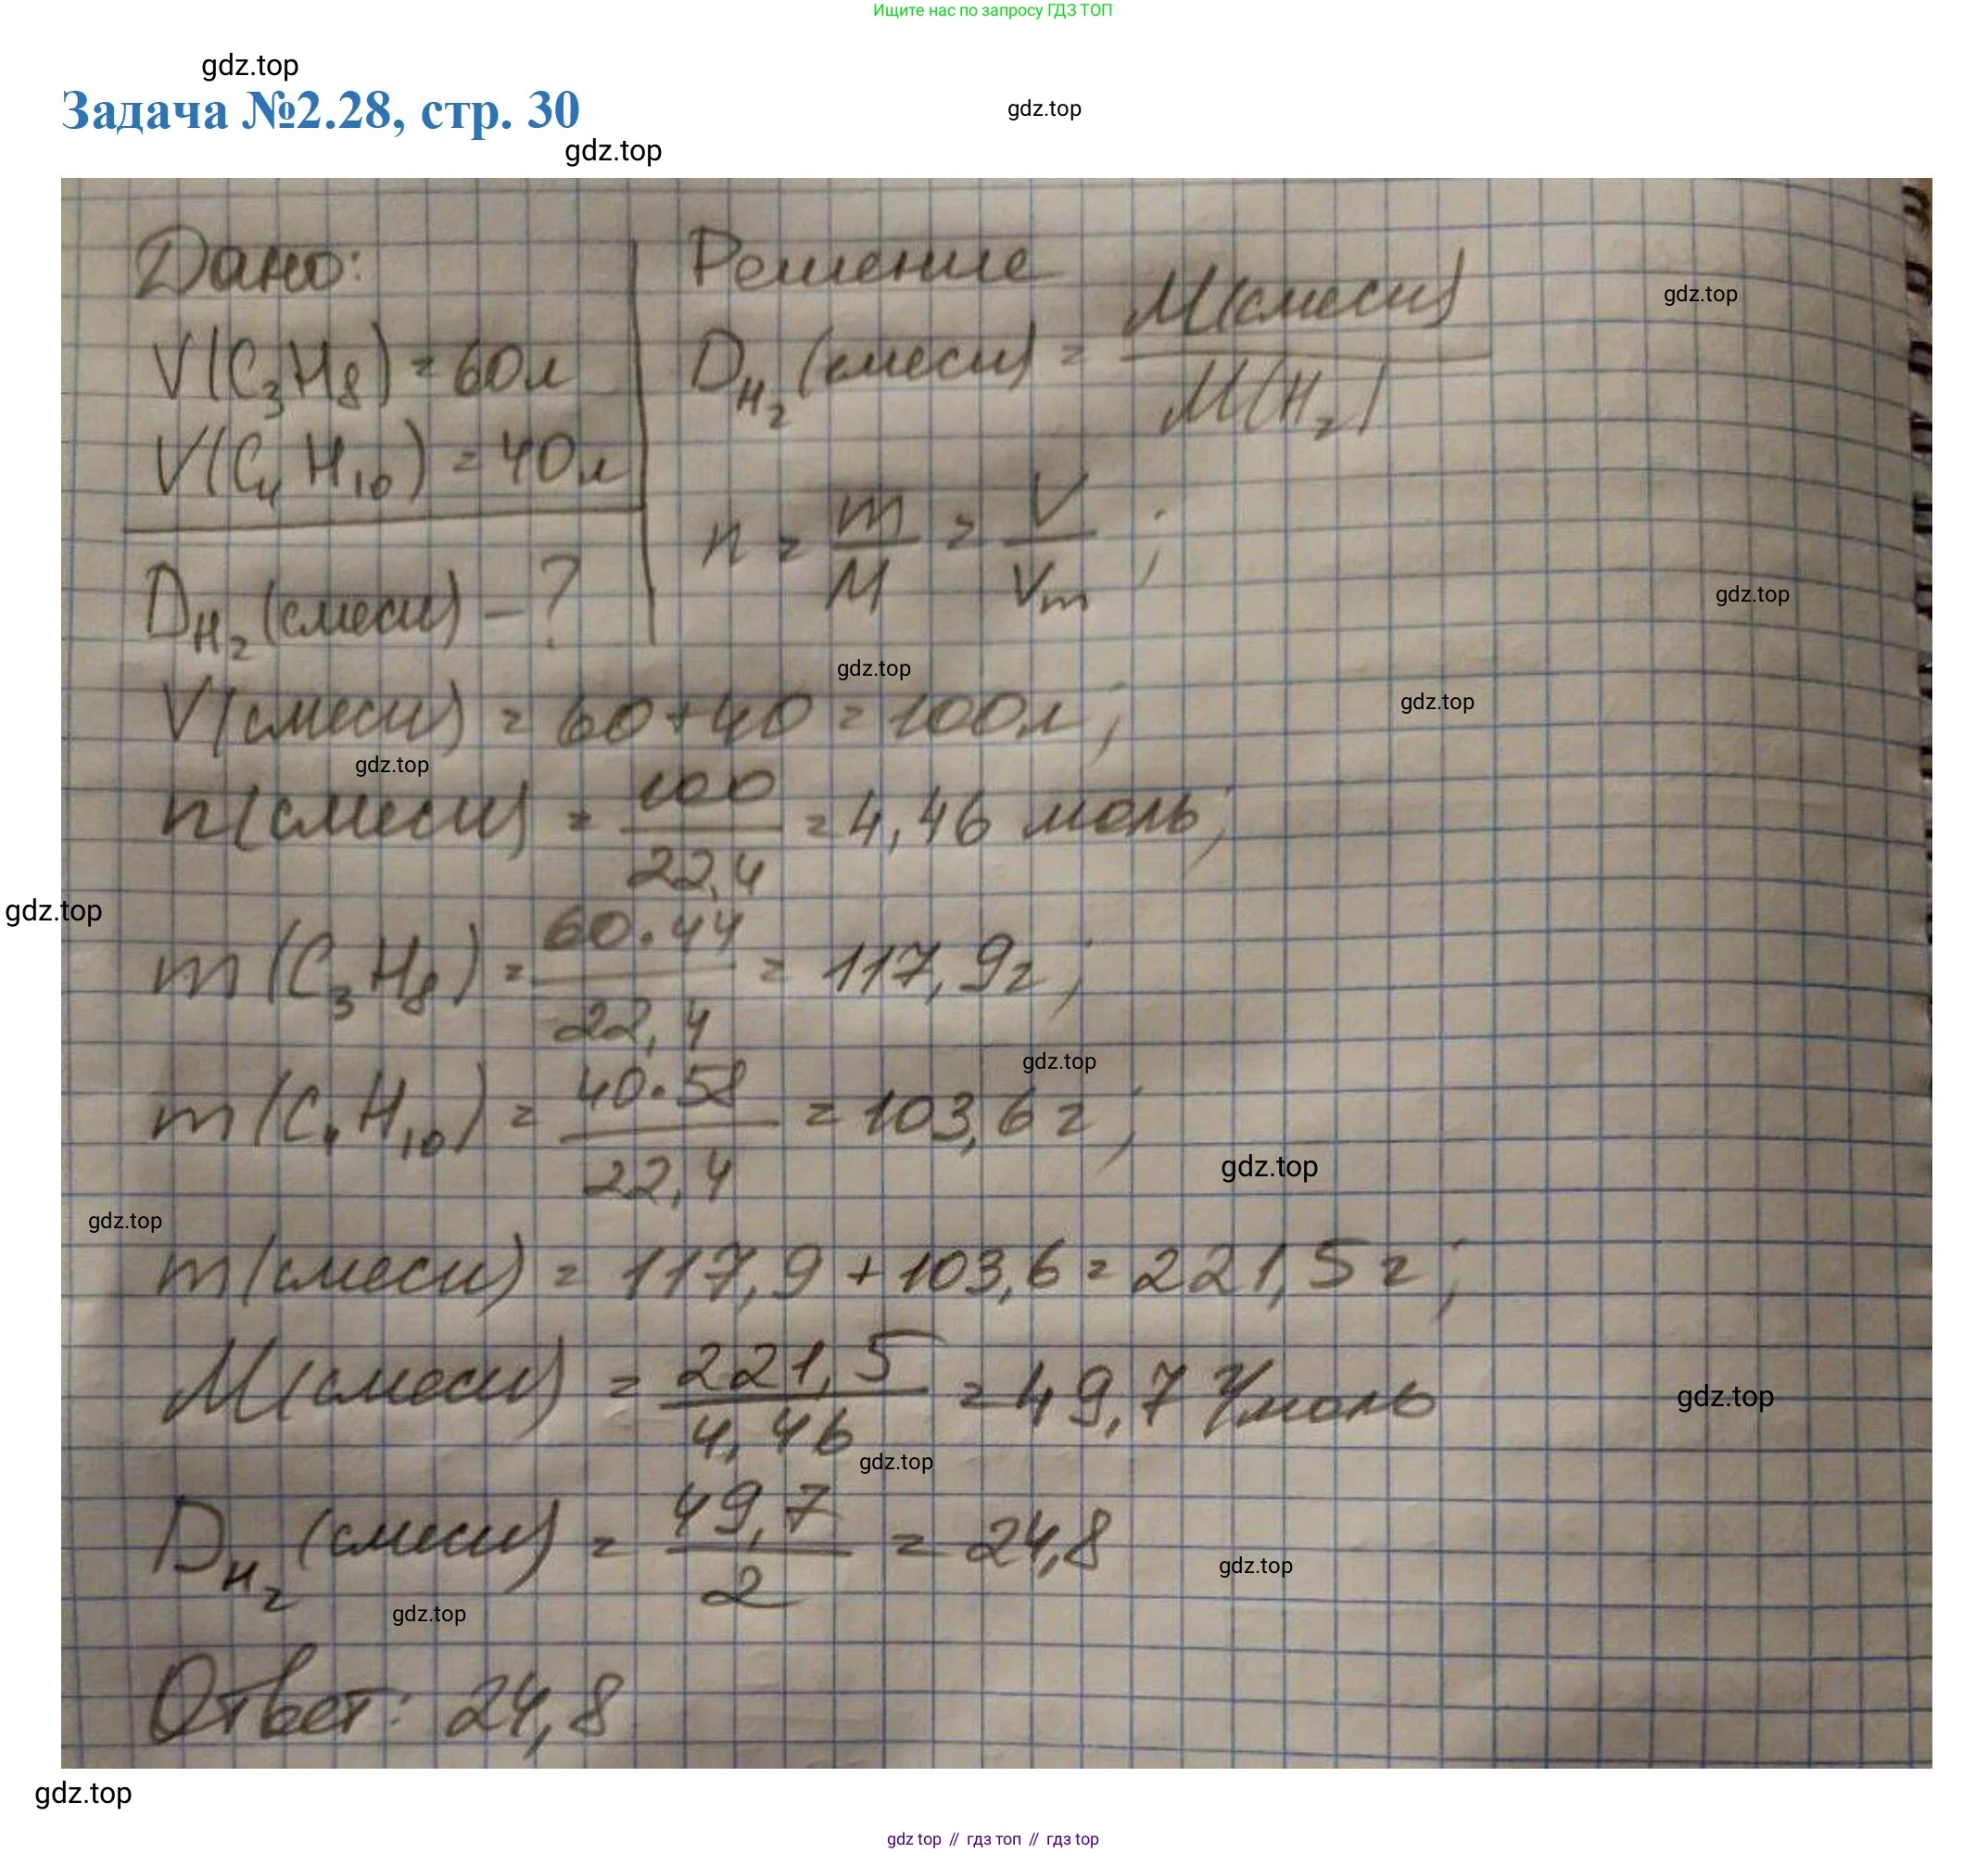 Ищите нас по запросу ГДЗ ТОП
gdz.top
Задача №2.28, стр. 30
gdz.top
gdz.top
Дано:
V(C₃H₈) = 60л
V(C₄H₁₀) = 40л
D_H₂ (смеси) - ?
Решение
D_H₂ (смеси) = M(смеси) / M(H₂)
gdz.top
n = m / M = V / Vm ;
gdz.top
gdz.top
V(смеси) = 60 + 40 = 100л;
gdz.top
gdz.top
n(смеси) = 100 / 22,4 = 4,46 моль;
gdz.top
m(C₃H₈) = 60·44 / 22,4 = 117,9г;
gdz.top
m(C₄H₁₀) = 40·58 / 22,4 = 103,6г;
gdz.top
gdz.top
m(смеси) = 117,9 + 103,6 = 221,5г;
M(смеси) = 221,5 / 4,46 = 49,7 г/моль
gdz.top
gdz.top
D_H₂ (смеси) = 49,7 / 2 = 24,8
gdz.top
gdz.top
Ответ: 24,8
gdz.top
gdz top // гдз топ // гдз top